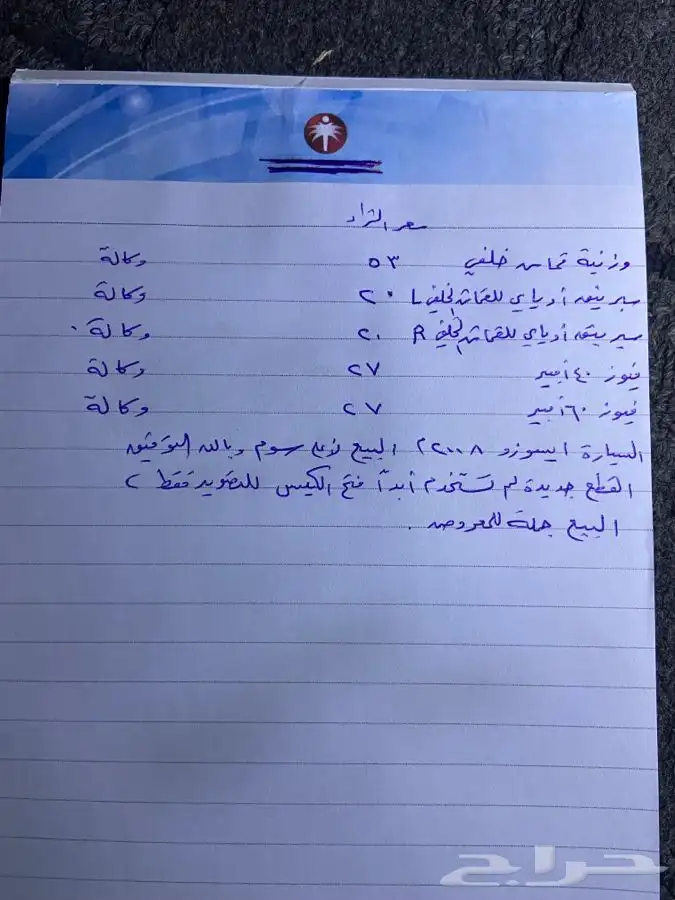 سعر الشراء
وزنية قماش خلفي ٥٣ وكالة
سبرينق أو ياي للقماش الخلفي L ٢٠ وكالة
سبرينق أو ياي للقماش الخلفي R ٢٠ وكالة .
فيوز ٤٠ أمبير ٢٧ وكالة
فيوز ٦٠ أمبير ٢٧ وكالة
السيارة ايسوزو ٢٠٠٨ م البيع لأعلى سوم وبالله التوفيق
القطع جديدة لم تستخدم أبداً فتح الكيس للتصوير فقط
البيع جملة للمعروض .
حراج